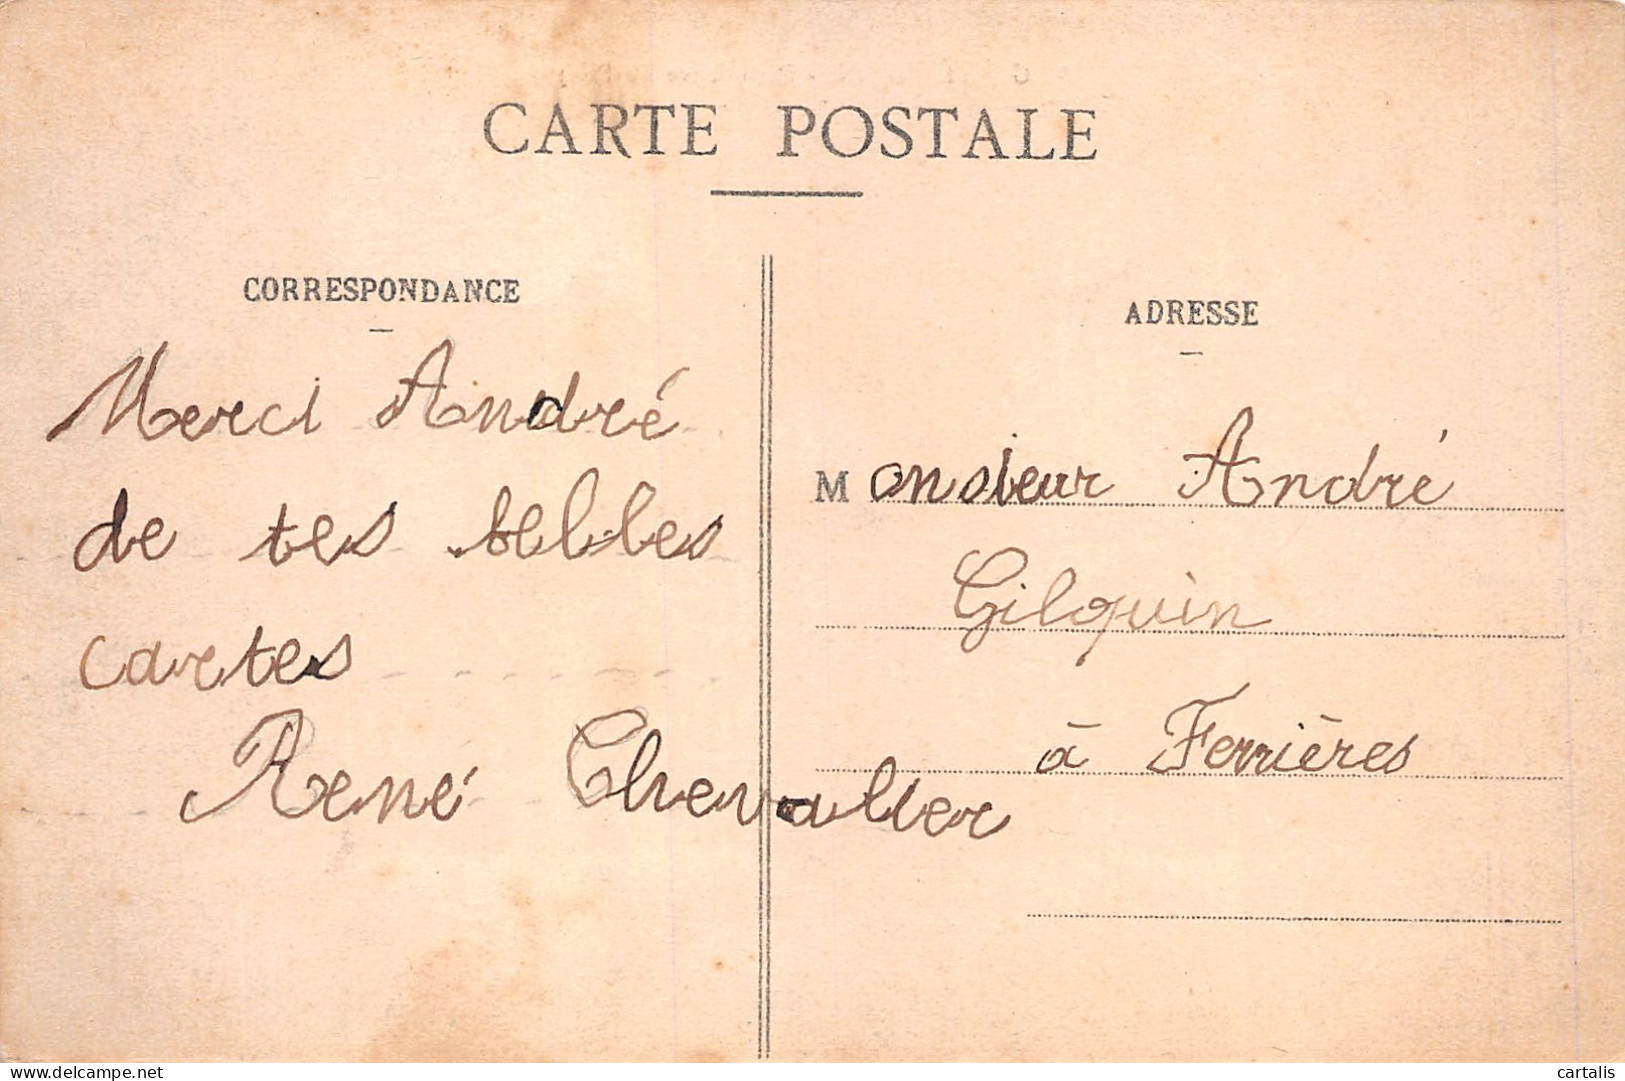 CARTE POSTALE
CORRESPONDANCE
Merci André
de tes belles
cartes
René Chevalier
ADRESSE
Monsieur André
Gilquin
à Ferrières
delcampe.net
cartalis